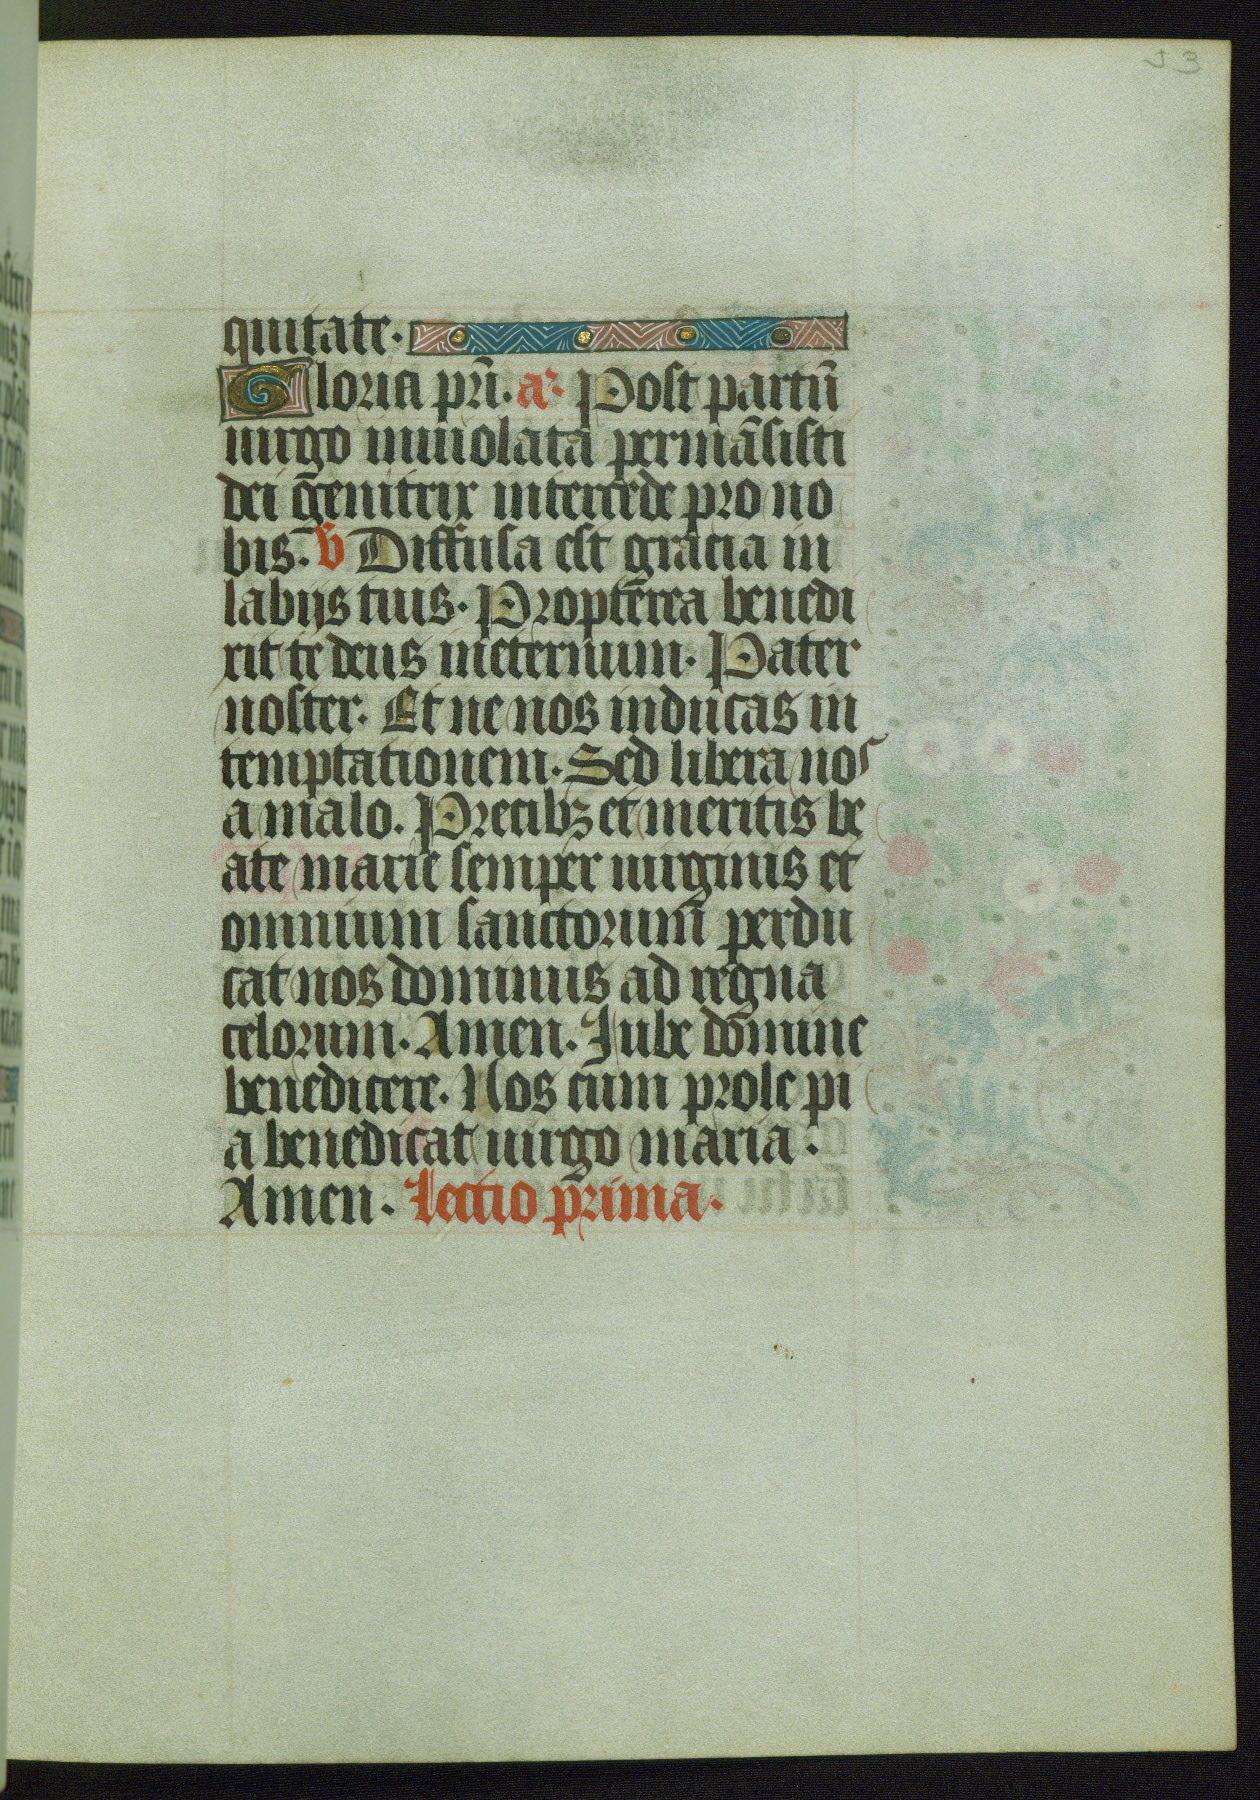 53
quitate.
Gloria pr̄i. a᷒. Post partū
uirgo inuiolata permāsisti
dei genitrix intercede pro no
bis. v̄ Diffusa est gratia in
labijs tuis. Propterea benedi
xit te deus ineternum. Pater
noster. Et ne nos inducas in
temptationem. Sed libera nos
a malo. Precibꝫ et meritis be
ate marie semper uirginis et
omnium sanctorum perdu
cat nos dominus ad regna
celorum. Amen. Iube domine
benedicere. Nos cum prole pi
a benedicat uirgo maria.
Amen. Lectio prima.